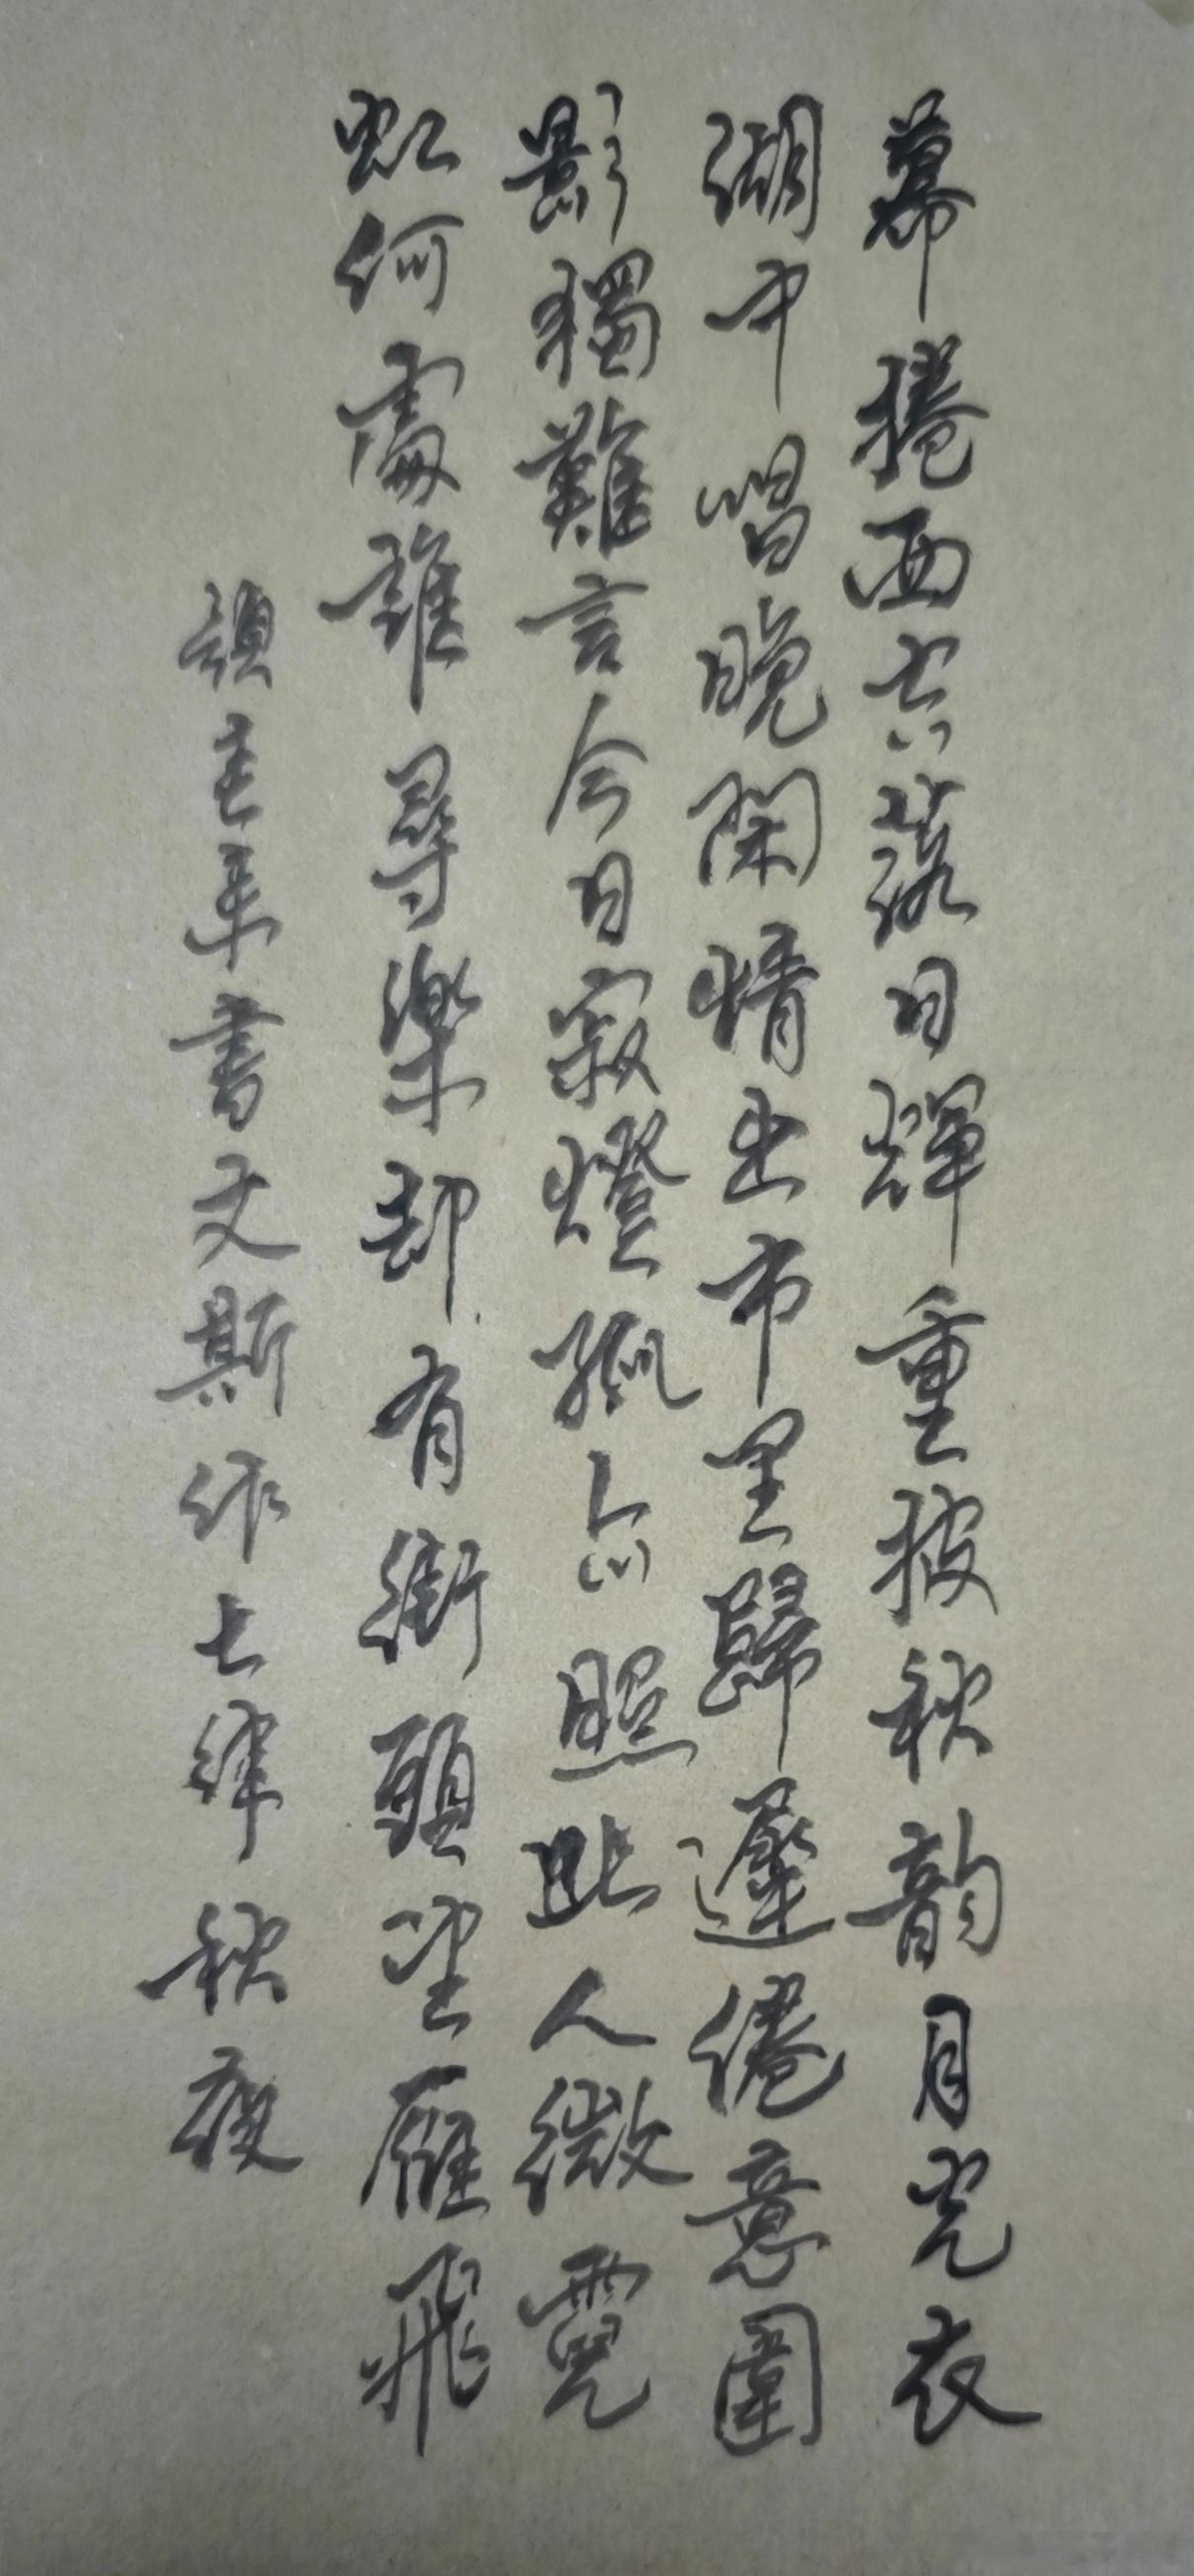 幕捲西落日輝重披秋韵月光衣
湖中唱晚閑情出市里歸遲倦意圍
影獨難言今日寂燈孤点照此人微霓
虹何處誰尋樂却有街頭望雁飛
年書文斯作七律秋夜